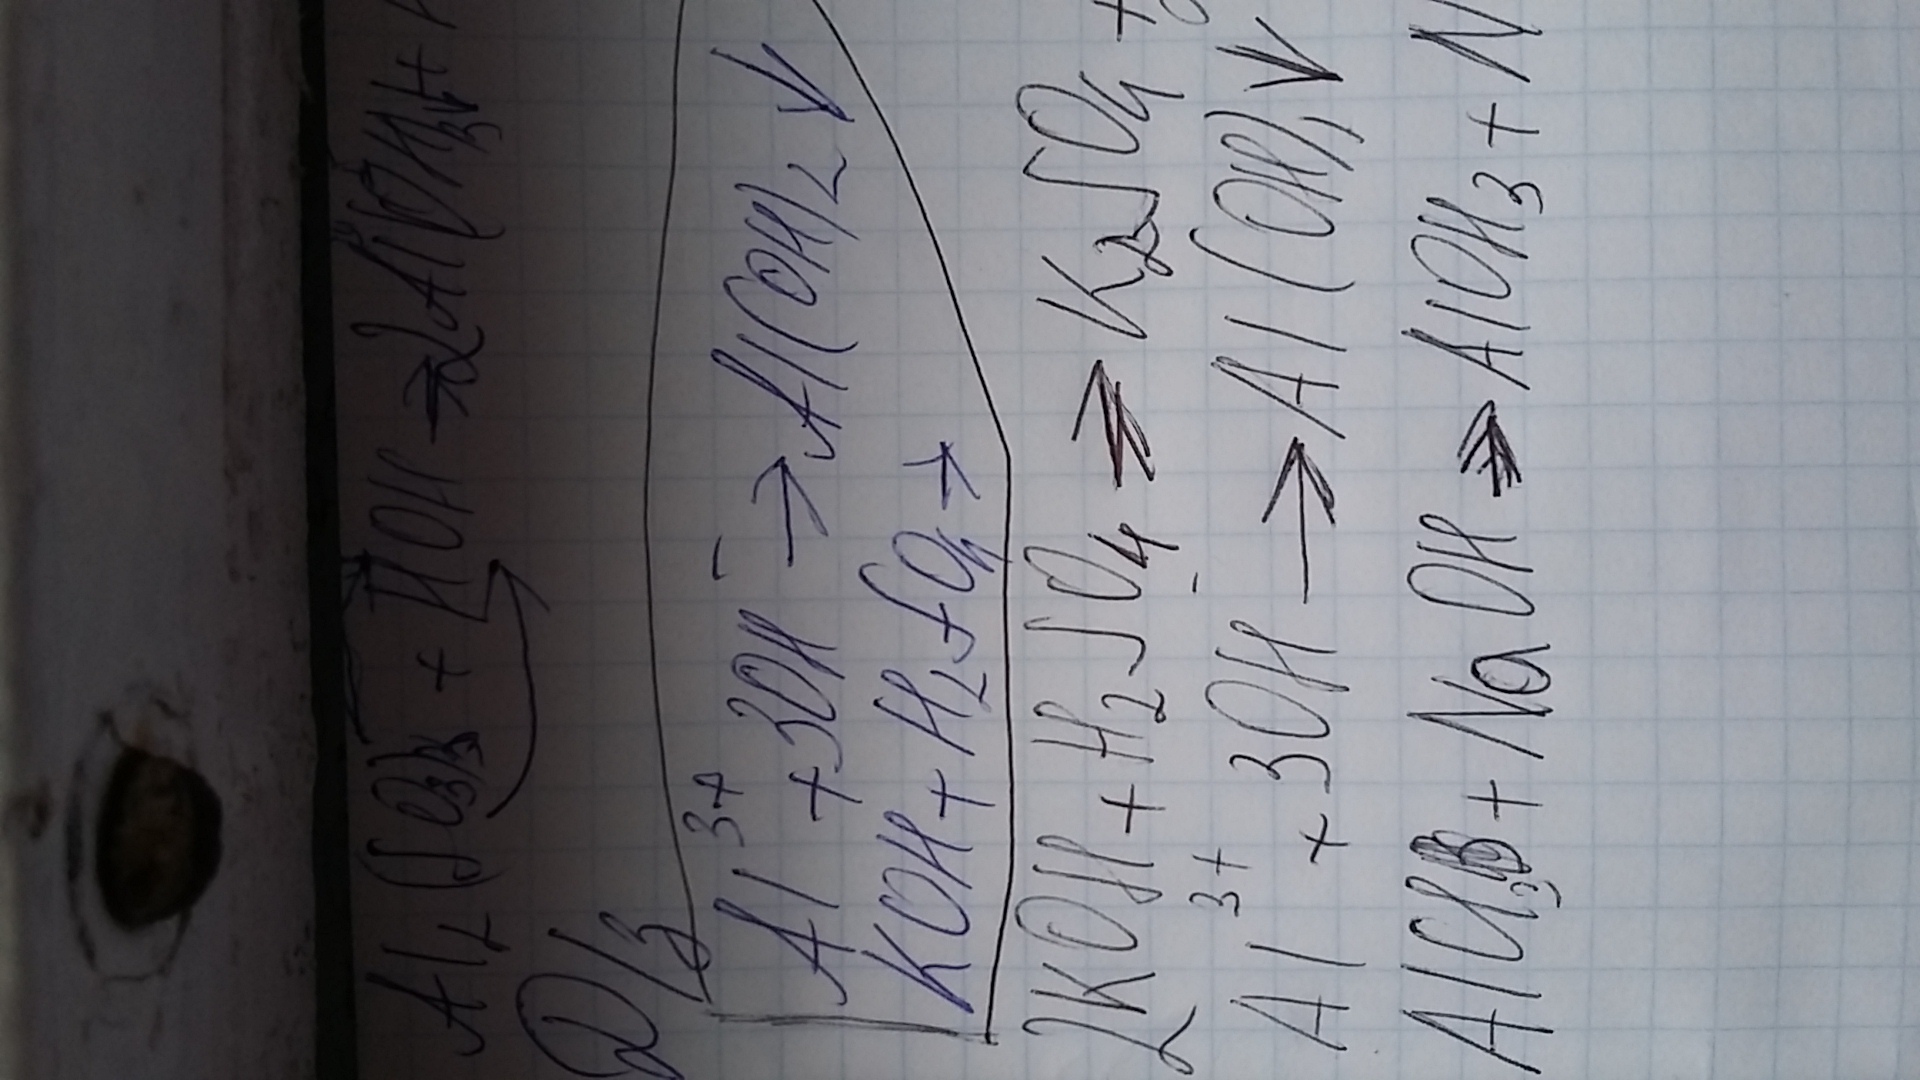 Al₂(SO₃)₃ + HOH → 2Al(OH)₃↓ +
D/з
Al³⁺ + 3OH⁻ → Al(OH)₂ ↓
KOH + H₂SO₄ →
2KOH + H₂SO₄ → K₂SO₄ +
Al³⁺ + 3OH⁻ → Al(OH), ↓
AlCl₃ + NaOH → AlOH₃ + N